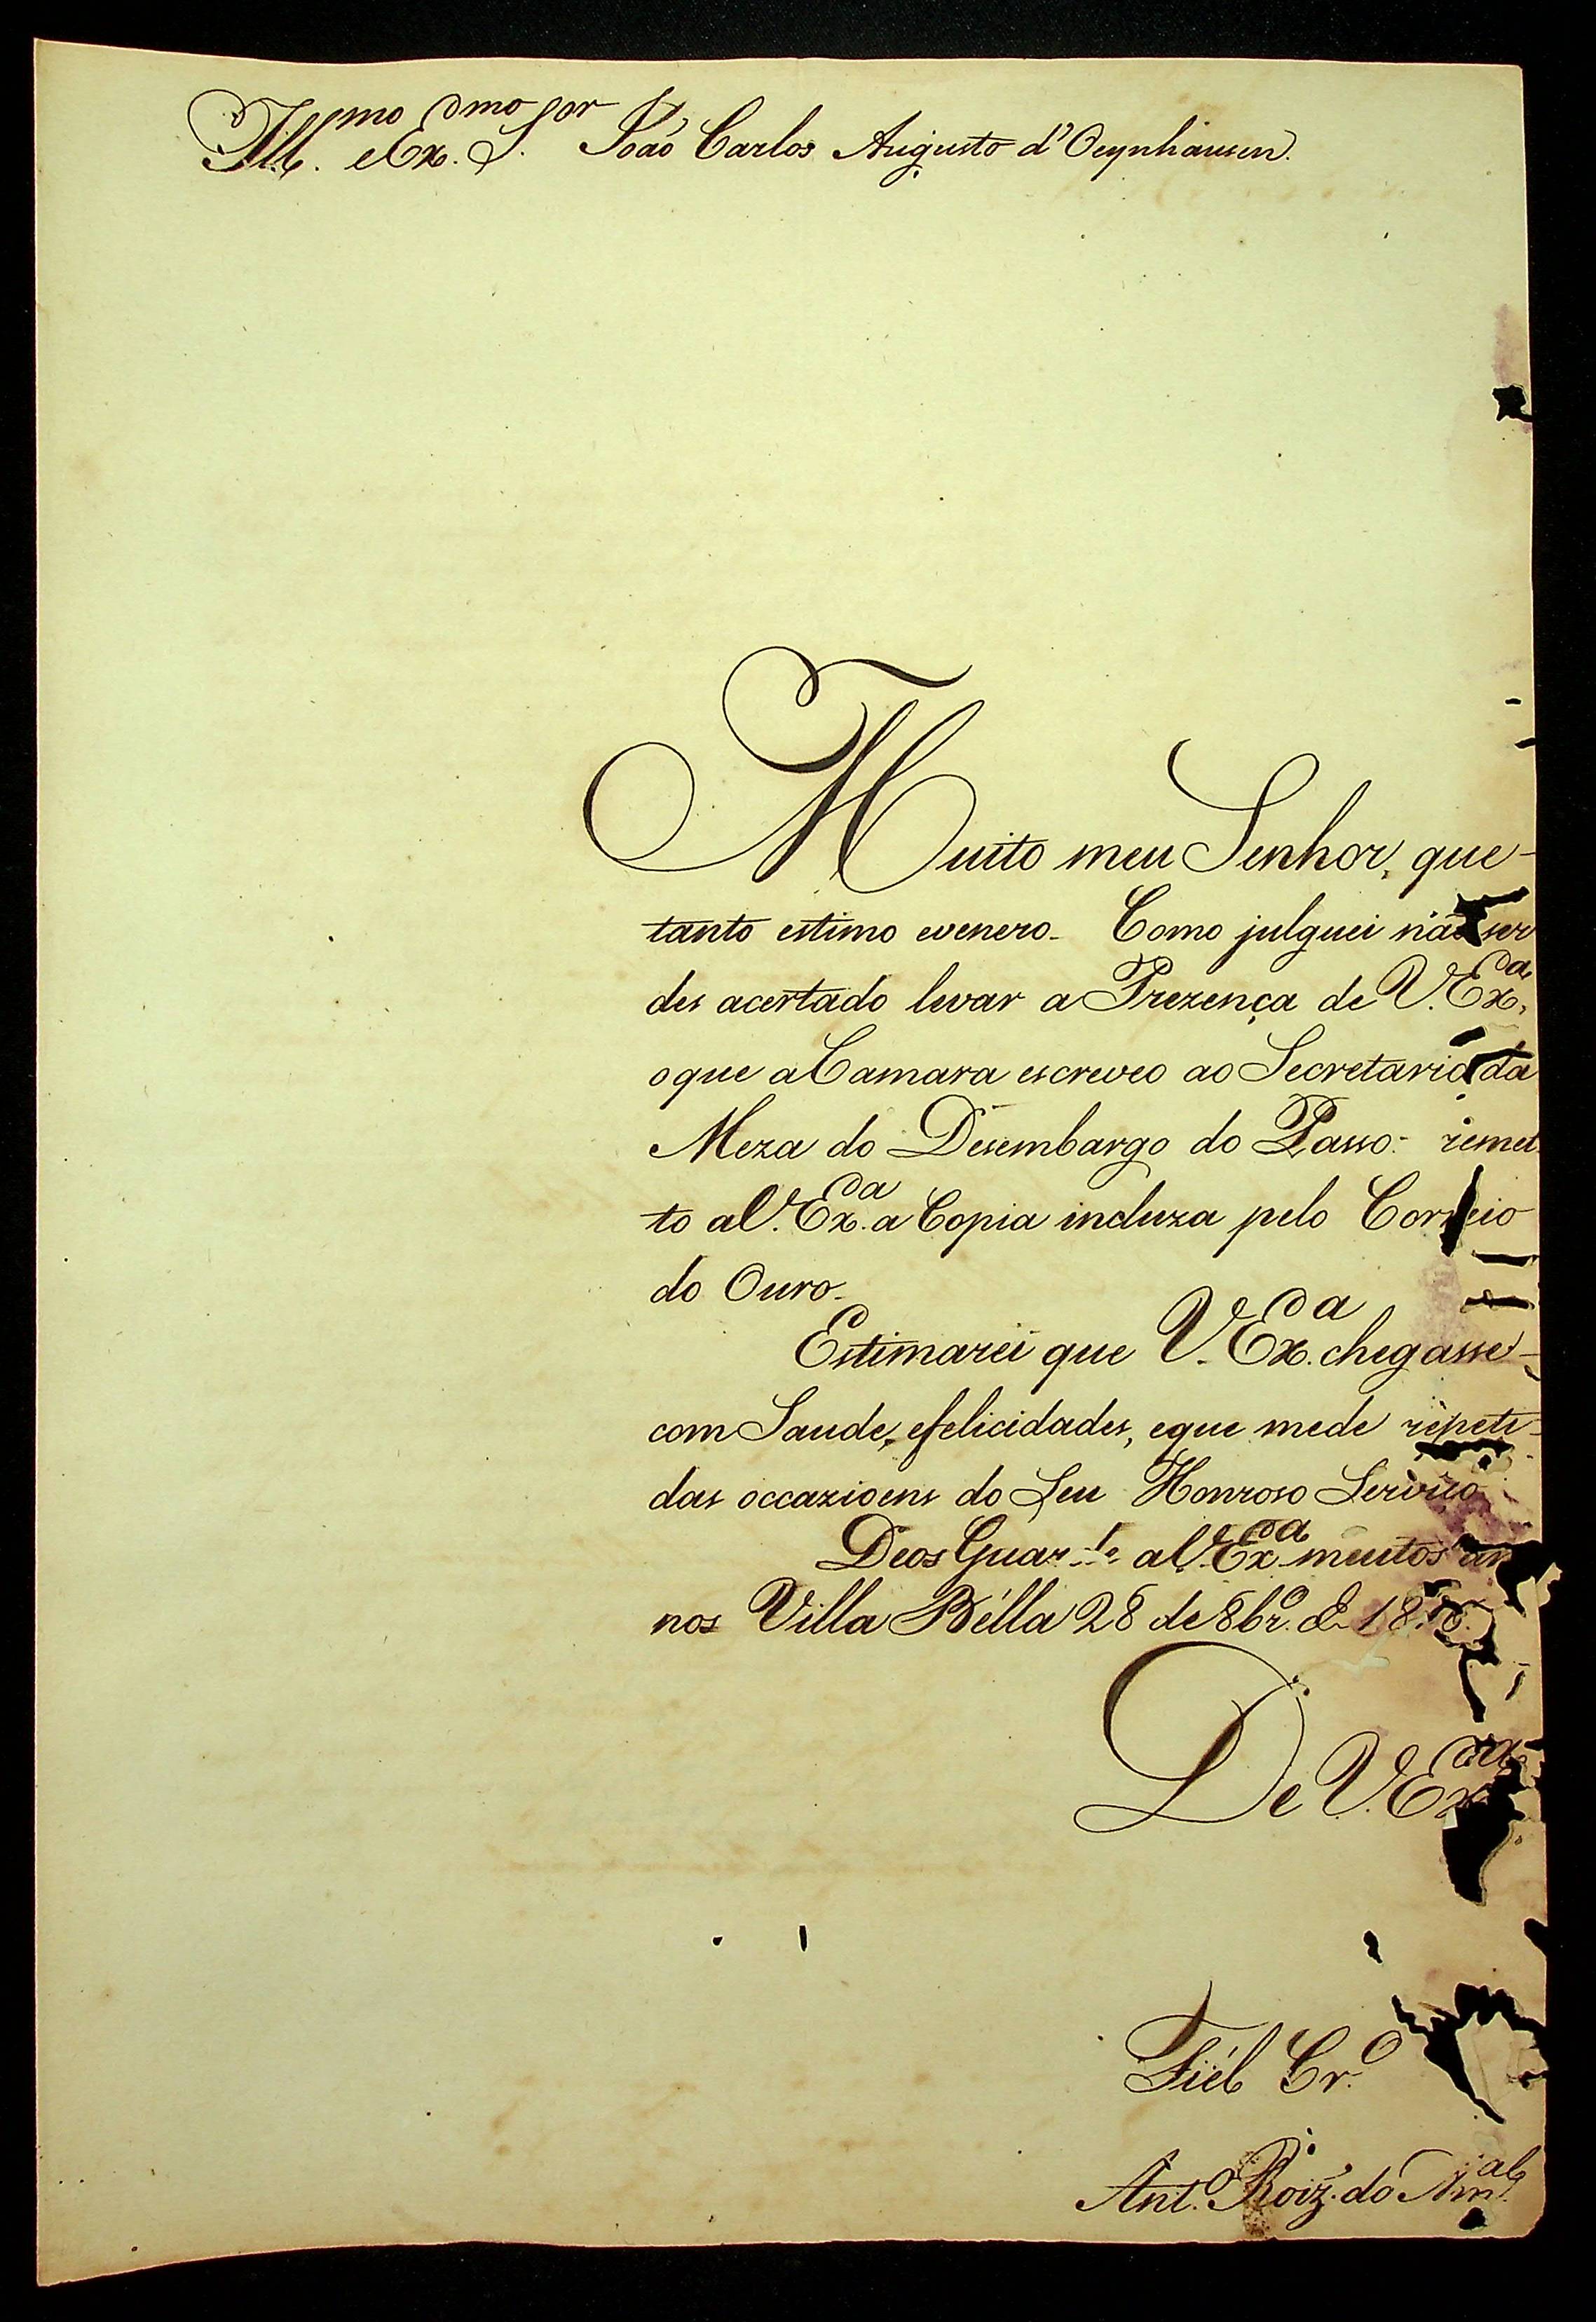 Ill.mo e Ex.mo S.or João Carlos Augusto d'Oeynhausen.
Muito meu Senhor, que
tanto estimo evenero. Como julguei não ser
des acertado levar a Prezença de V. Ex.a
oque aCamara escreveo ao Secretario da
Meza do Desembargo do Passo: remet
to aV. Ex.a a Copia incluza pelo Correio
do Ouro.
Estimarei que V. Ex.a chegasse
com Saude, efelicidades, eque mede repeti
das occazioens do Seu Honroso Serviço
Deos Guarde aV. Ex.a muitos an
nos Villa Bélla 28 de 8br.o de
De V. Ex.a
Fiél Cr.o
Ant.o Roiz' do